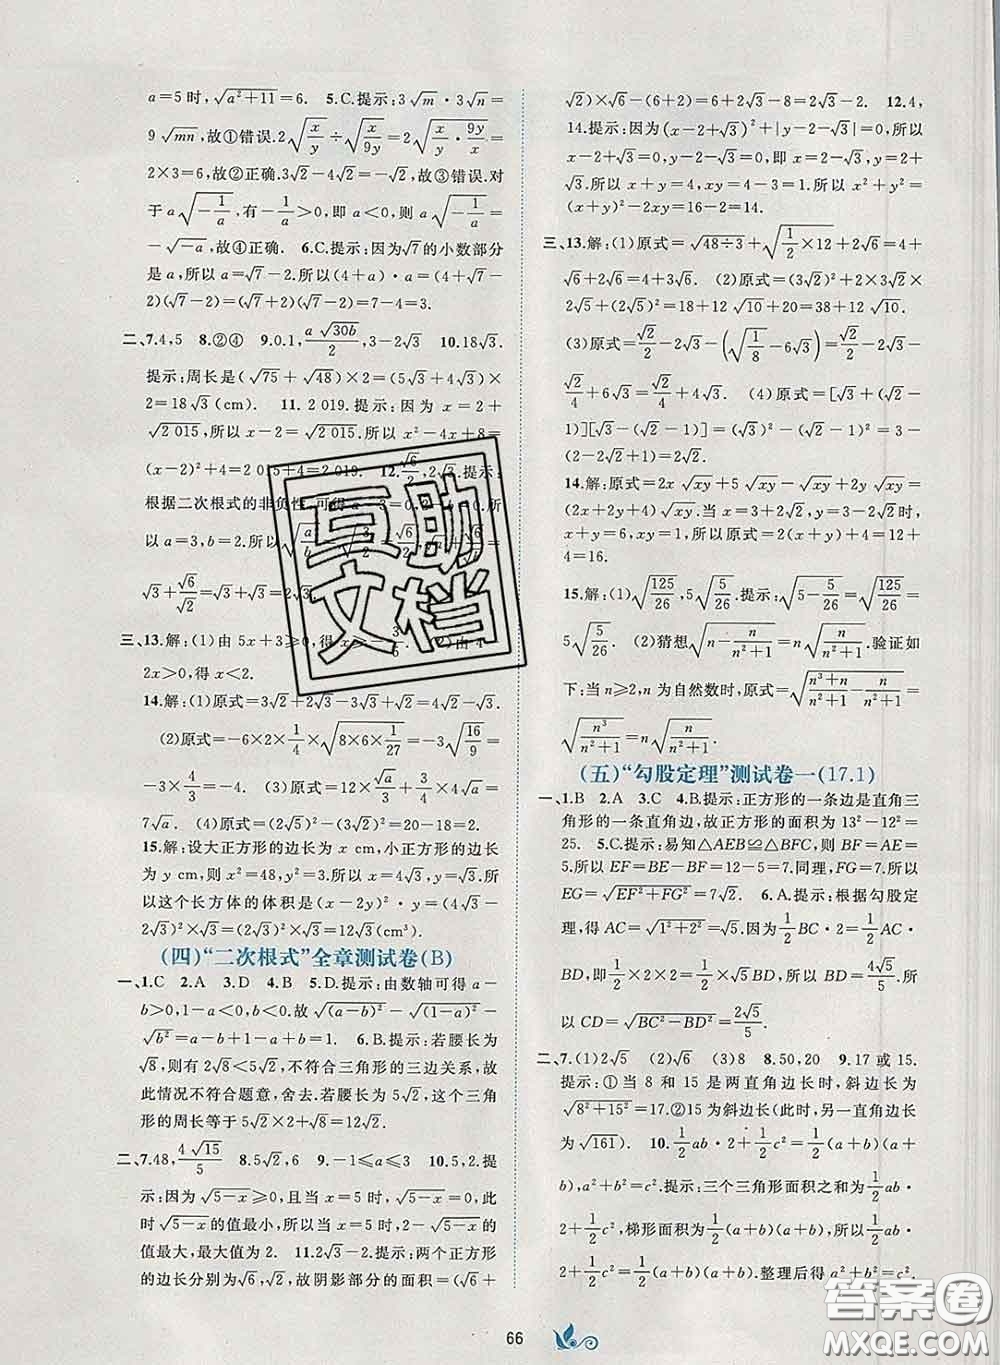 a=5时,√(a²+11)=6. 5.C.提示:3√m·3√n=
9√(mn),故①错误.2√(x/y)÷√(x/9y)=2√(x/y·9y/x)=
2×3=6,故②正确.3√2-4√2=-√2,故③错误.对
于a√(-1/a),有-1/a>0,即a<0,则a√(-1/a)=
-√(-a),故④正确. 6.C.提示:因为√7的小数部分
是a,所以a=√7-2.所以(4+a)·a=(4+√7-
2)(√7-2)=(√7+2)(√7-2)=7-4=3.
二、7.4,5 8.②④ 9.0.1,a√(30b)/2,3-2√3 10.18√3.
提示:周长是(√75+√48)×2=(5√3+4√3)×
2=18√3(cm). 11.2 019.提示:因为x=2+
√(2 015),所以x-2=√(2 015).所以x²-4x+8=
(x-2)²+4=2 015+4=2 019. 12.√6/2,2√3.提示:
根据二次根式的非负性,可得a-3=0,2-b=0.所
以a=3,b=2.所以√(a/b)=√(3/2)=√6/2,
√3+√6/√2=√3+√3=2√3.
三、13.解:(1)由5x+3≥0,得x≥-3/5. (2)由4-
2x>0,得x<2.
14.解:(1)原式=3√2+2√3-3√3+√2=4√2-√3.
(2)原式=-6×2×1/4×√(8×6×1/27)=-3√(16/9)
=-3×4/3=-4. (3)原式=2√a-√a+6√a=
7√a. (4)原式=(2√5)²-(3√2)²=20-18=2.
15.解:设大正方形的边长为x cm,小正方形的边长
为y cm,则x²=48,y²=3,所以x=4√3,y=√3.所
以这个长方体的体积是(x-2y)²·y=(4√3-
2√3)²×√3=(2√3)²×√3=12√3(cm³).
(四)“二次根式”全章测试卷(B)
一、1.C 2.A 3.D 4.B 5.D.提示:由数轴可得a-
b>0,1-a<0,b<0.故√((a-b)²)-√((1-a)²)-
√(b²)=a-b+1-a+b=1. 6.B.提示:若腰长为
√8,则有2√8<5√2,不符合三角形的三边关系,故
此情况不符合题意,舍去.若腰长为5√2,这个三角
形的周长等于5√2×2+√8=12√2.
二、7.48,4√15/5 8.5√2,6 9.-1≤a≤3 10.5,2.提
示:因为√(5-x)≥0,所以x=5时,√(5-x)=0,此
时√(5-x)的值最小,所以当x=5时,2-√(5-x)的
值最大,最大值为2. 11.2√3-2.提示:两个正方形
的边长分别为√6,√2,故阴影部分的面积=(√6+
√2)×√6-(6+2)=6+2√3-8=2√3-2. 12.4,
14.提示:因为(x-2+√3)²+|x-2-√3|=0,所以
x-2+√3=0,x-2-√3=0,即x=2-√3,y=2+
√3.所以x+y=4,xy=4-3=1.所以x²+y²=
(x+y)²-2xy=16-2=14.
三、13.解:(1)原式=√(48÷3)+√(1/2×12)+2√6=4+
√6+2√6=4+3√6. (2)原式=(3√2)²+2×3√2×
2√5+(2√5)²=18+12√10+20=38+12√10.
(3)原式=√2/2-2√3-(√(1/8)-6√3)=√2/2-2√3-√2/4
+6√3=√2/4+4√3. (4)原式=[√3+(√2-
1)][√3-(√2-1)]=(√3)²-(√2-1)²=3-
(2-2√2+1)=2√2.
14.解:原式=2x√(xy)+5√(xy)-√(xy)+2y√(xy)=
(2x+2y+4)√(xy).当x=3+2√2,y=3-2√2时,
x+y=6,xy=1.所以原式=2(x+y)+4=12+
4=16.
15.解:(1)√(125/26),5√(5/26).验证:√(5-5/26)=√(125/26)=
5√(5/26). (2)猜想√(n-n/(n²+1))=n√(n/(n²+1)).验证如
下:当n≥2,n为自然数时,原式=√((n³+n-n)/(n²+1))=
√(n³/(n²+1))=n√(n/(n²+1)).
(五)“勾股定理”测试卷一(17.1)
一、1.B 2.A 3.C 4.B.提示:正方形的一条边是直角三
角形的一条直角边,故正方形的面积为13²-12²=
25. 5.C.提示:易知△AEB≌△BFC,所以BF=AE=
5.所以EF=BE-BF=12-5=7.同理,FG=7.所以
EG=√(EF²+FG²)=7√2. 6.A.提示:根据勾股定
理,得AC=√(1²+2²)=√5.因为1/2BC·2=1/2AC·
BD,即1/2×4×2=1/2×√5BD,所以BD=4√5/5.所
以CD=√(BC²-BD²)=2√5/5.
二、7.(1)2√5 (2)√6 (3)8 8.50,20 9.17或15.
提示:①当8和15是两直角边长时,斜边长为
√(8²+15²)=17.②15为斜边长(此时,另一直角边长
为√161). 10.1/2ab·2+1/2c²=1/2(a+b)(a+
b),a²+b²=c².提示:三个三角形面积之和为1/2ab
·2+1/2c²,梯形面积为1/2(a+b)(a+b),所以1/2ab·
2+1/2c²=1/2(a+b)(a+b).整理后得a²+b²=c².
66
互助
文档
答案圈
MXQE.COM